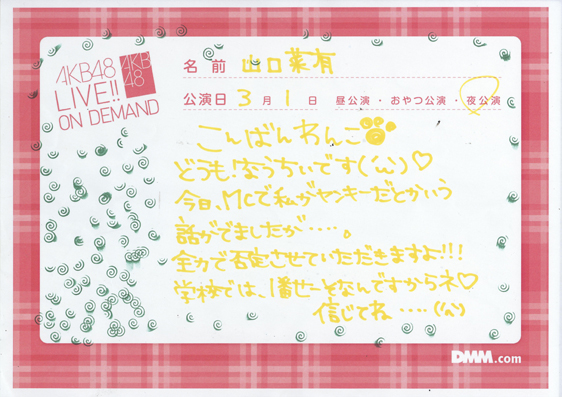 AKB48
LIVE!!
ON DEMAND
AKB
48
名前 山口菜有
公演日 3月1日 昼公演・おやつ公演・夜公演
こんばんわんこ
どうも!なうちぃです('ω')♡
今日、MCで私がヤンキーだとかいう
話がでましたが‥‥。
全力で否定させていただきますよ!!!
学校では、1番せーそなんですからネ♡
信じてね‥‥('ω')
DMM.com